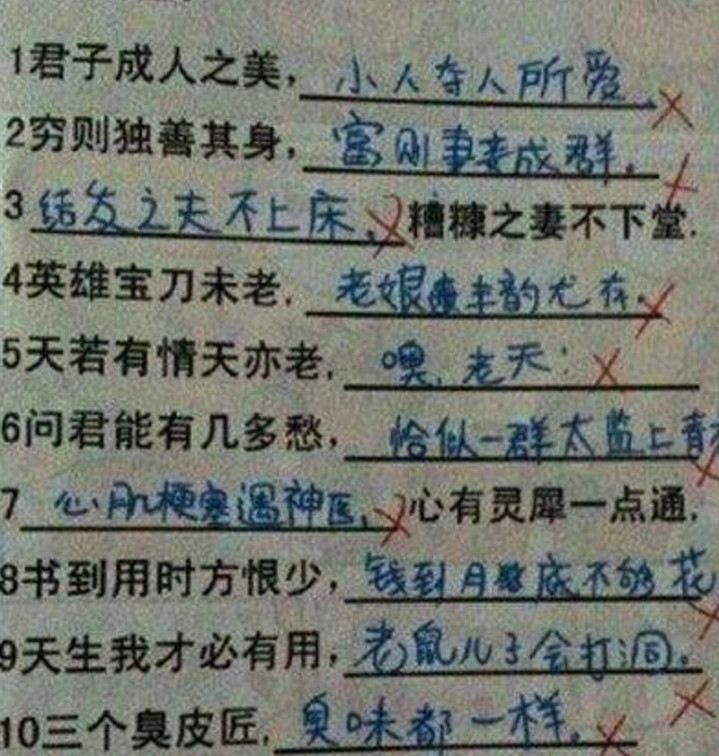 1君子成人之美,小人夺人所爱.
2穷则独善其身,富则妻妾成群.
3结发之夫不上床,糟糠之妻不下堂.
4英雄宝刀未老,老娘丰韵尤存.
5天若有情天亦老,噢,老天!
6问君能有几多愁,恰似一群太监上青
7心肌梗塞遇神医,心有灵犀一点通,
8书到用时方恨少,钱到月底不够花
9天生我才必有用,老鼠儿子会打洞.
10三个臭皮匠,臭味都一样.